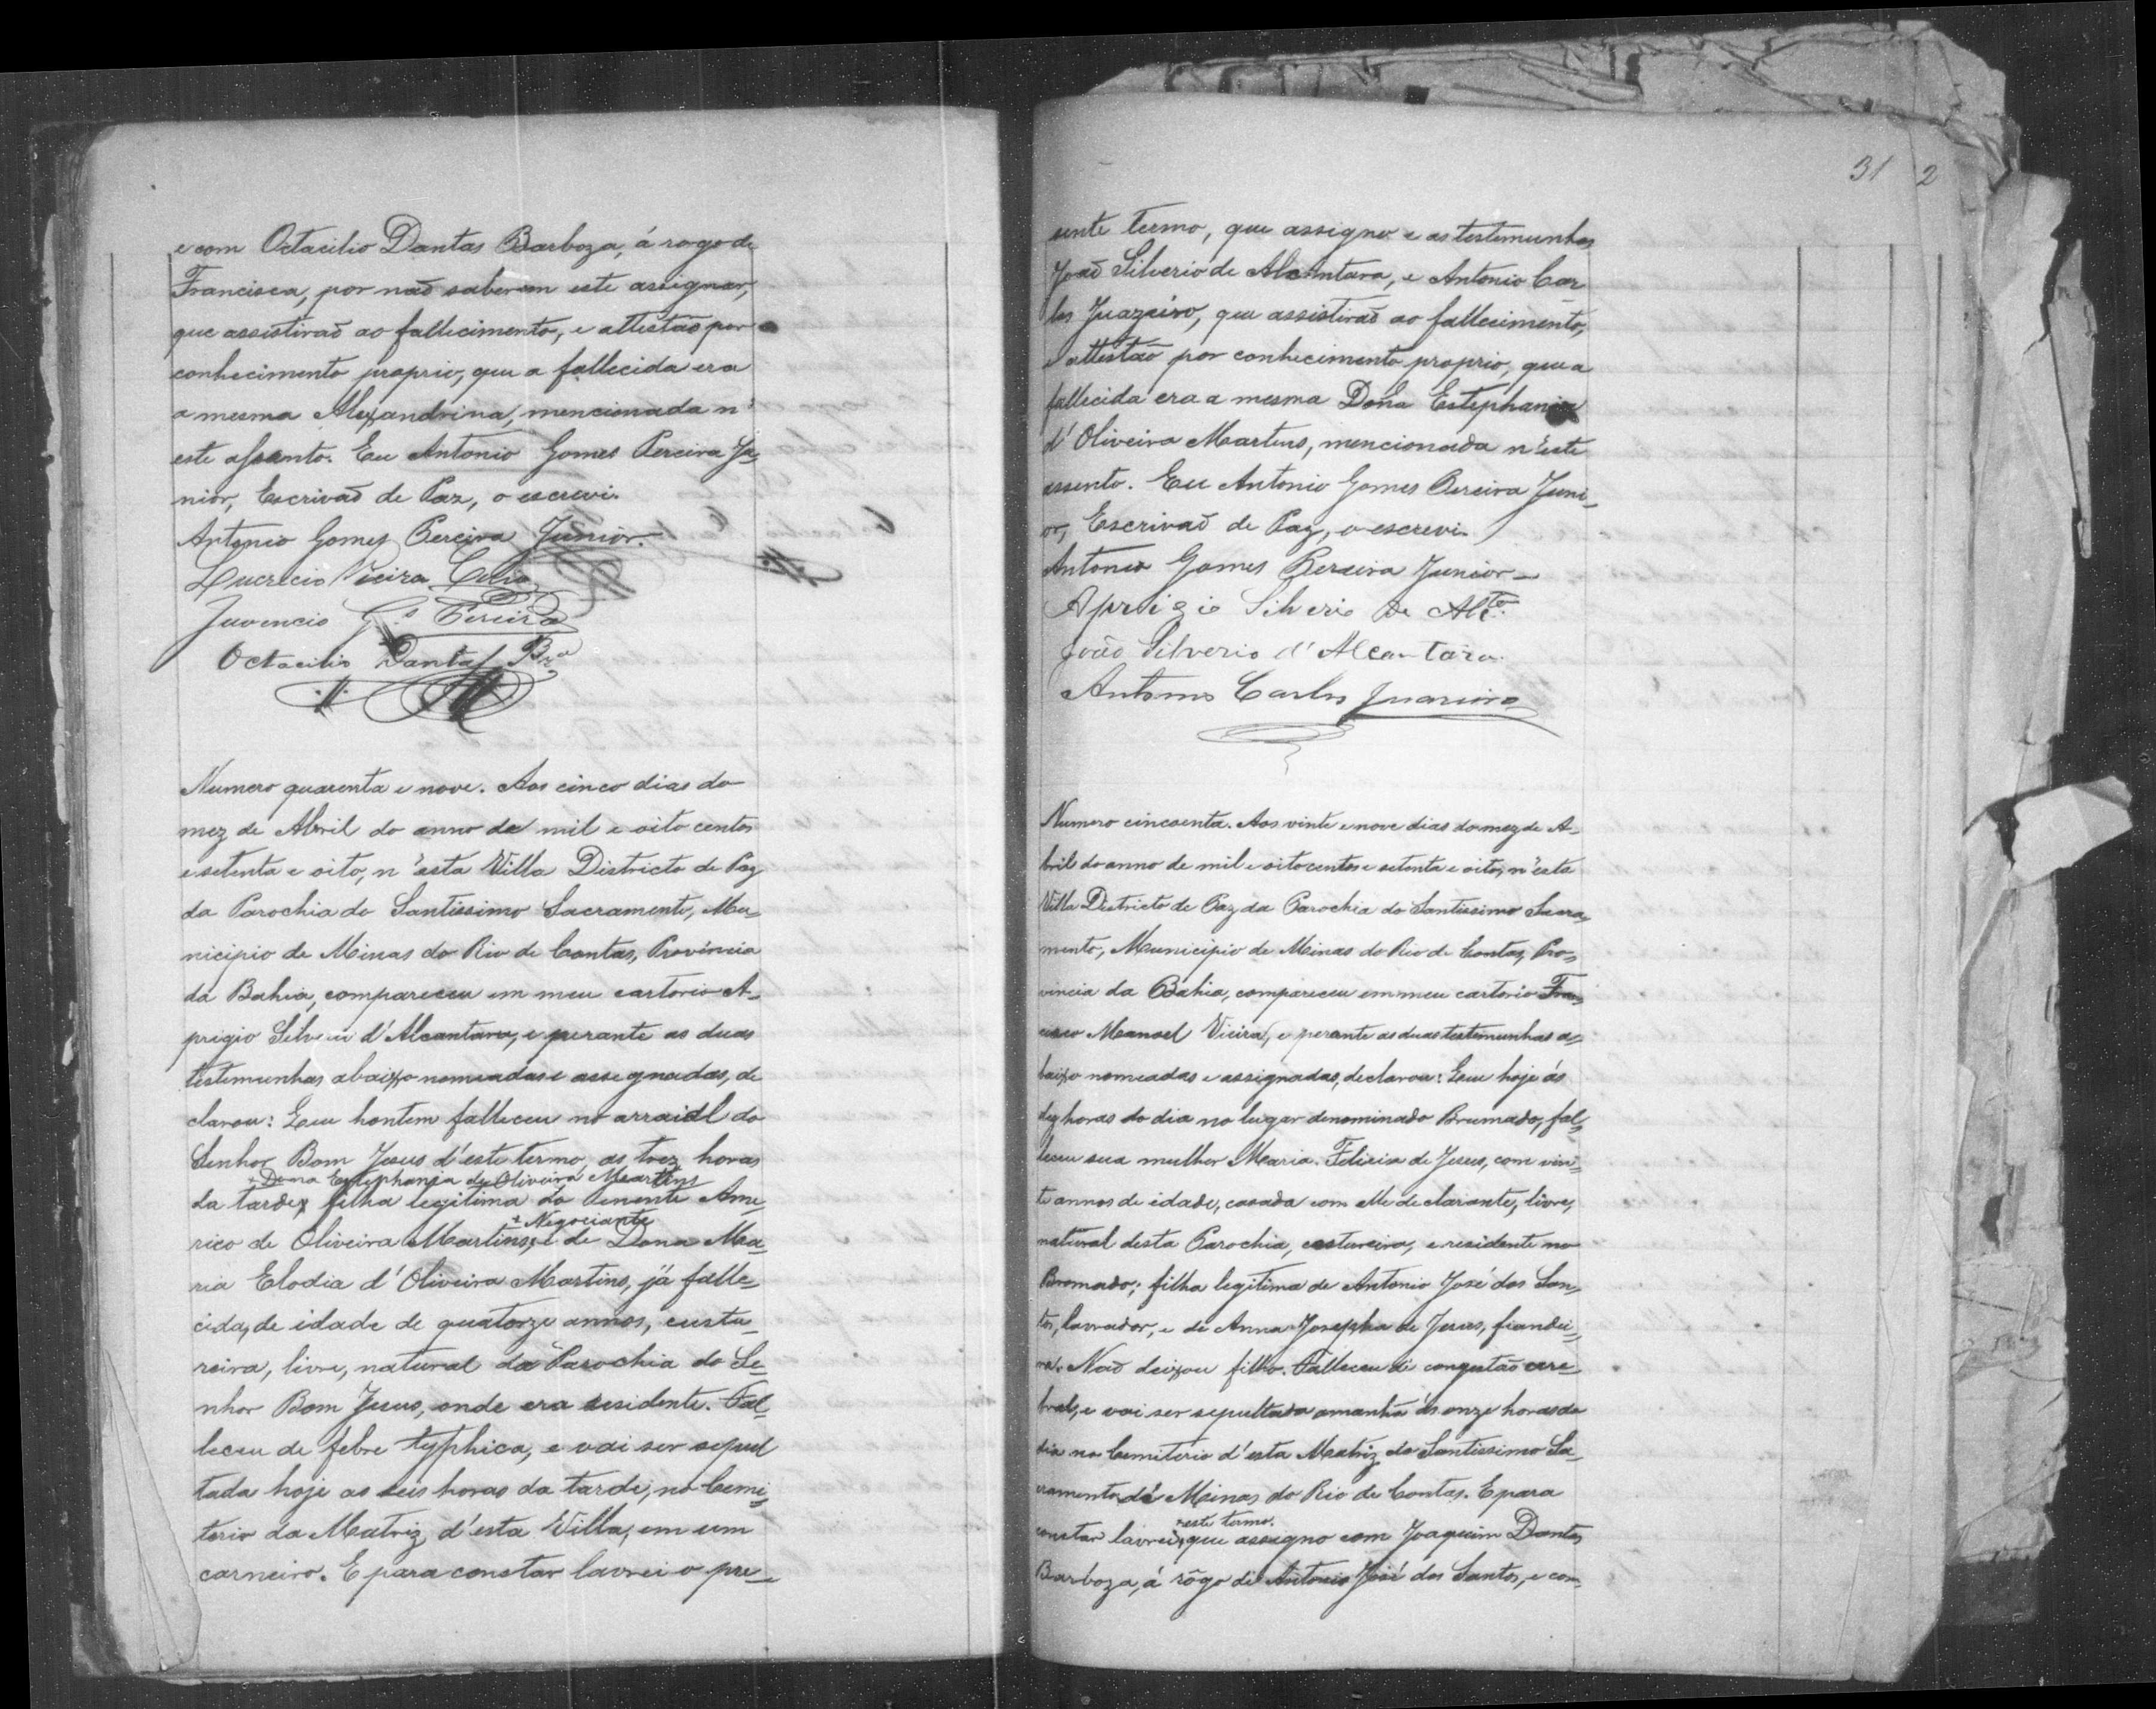 e com Octacilio Dantas Barboza, á rogo de
Francisca, por naõ saberem este assignar,
que assistiraõ ao fallecimento, e attestaõ por
conhecimento proprio, que a fallecida era
a mesma Alexandrina, mencionada n'
este assento. Eu Antonio Gomes Pereira Ju-
nior, Escrivaõ de Paz, o escrevi.
Antonio Gomes Pereira Junior.
Lucrecio Vieira
Juvencio G.s Pereira
Octacilio Dantas Bza
Numero quarenta e nove. Aos cinco dias do
mez de Abril do anno de mil e oito centos
e setenta e oito, n'esta Villa Districto de Paz
da Parochia do Santissimo Sacramento, Mu-
nicipio de Minas do Rio de Contas, Provincia
da Bahia, compareceu em meu cartorio A-
prigio Silverio d'Alcantara, e perante as duas
testemunhas abaixo nomeadas e assignadas, de
clarou: Que hontem falleceu no arraial do
Senhor Bom Jesus d'este termo, as trez horas
+ Dona Estephania de Oliveira Martins
da tarde, x filha legitima do Tenente Ame-
+ Negociante
rico de Oliveira Martins, x e de Dona Ma-
ria Elodia d'Oliveira Martins, já falle-
cida, de idade de quatorze annos, custu-
reira, livre, natural da Parochia do Se-
nhor Bom Jesus, onde era residente. Fal-
leceu de febre typhica, e vai ser sepul
tada hoje as seis horas da tarde, no Cemi-
terio da Matriz d'esta Villa, em um
carneiro. E para constar lavrei o pre-
31 2
sente termo, que assigno e as testemunhas
Joaõ Silverio de Alcantara, e Antonio Car
los Juazeiro, que assistiraõ ao fallecimento,
e attestaõ por conhecimento proprio, que a
fallecida era a mesma Dona Estephania
d'Oliveira Martins, mencionada n'este
assento. Eu Antonio Gomes Pereira Juni-
or, Escrivaõ de Paz, o escrevi.
Antonio Gomes Pereira Junior
Aprigio Silverio de Alc.ta
João Silverio d'Alcantara.
Antonio Carlos Juaseiro
Numero cincoenta. Aos vinte e nove dias do mez de A-
bril do anno de mil e oito centos e setenta e oito, n'esta
Villa Districto de Paz da Parochia do Santissimo Sacra-
mento, Municipio de Minas do Rio de Contas, Pro-
vincia da Bahia, compareceu em meu cartorio Fran-
cisco Manoel Vieira, e perante as duas testemunhas a-
baixo nomeadas e assignadas, declarou: Que hoje ás
dez horas do dia no lugar denominado Brumado, fal-
leceu sua mulher Maria Felicia de Jesus, com vin-
te annos de idade, casada com elle declarante, livre,
natural desta Parochia, custureira, e residente no
Bromado; filha legitima de Antonio José dos San-
tos, lavrador, e de Anna Josepha de Jesus, fiandei-
ra. Naõ deixou filho. Falleceu de congestaõ cere-
bral, e vai ser sepultada amanhã ás onze horas do
dia no Cemiterio d'esta Matriz do Santissimo Sa-
cramento de Minas do Rio de Contas. E para
x este termo.
constar lavrei x, que assigno com Joaquim Dantas
Barboza, á rôgo de Antonio José dos Santos, e com